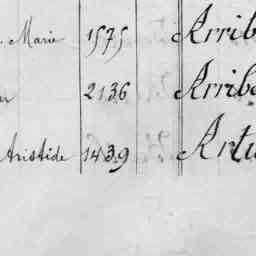 Marie 1575 Arrib
2136 Arriba
Aristide 1439 Artu